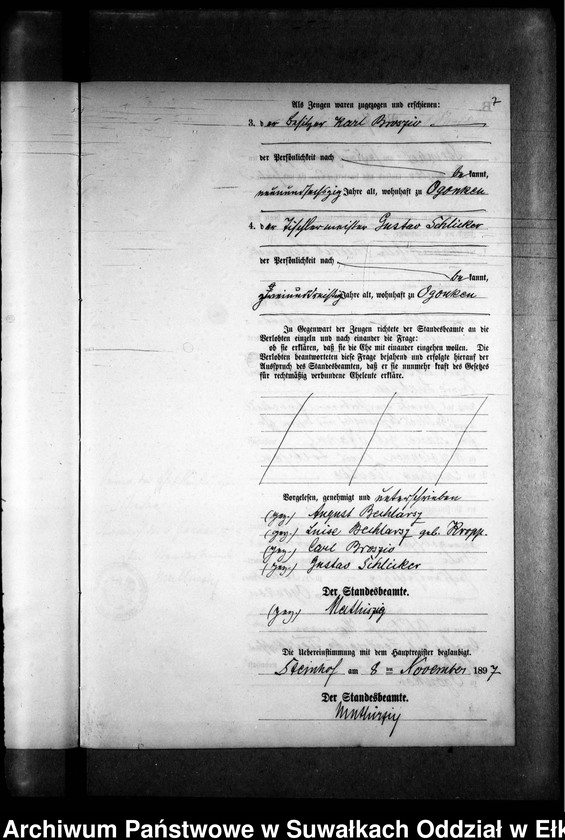 7
B
Als Zeugen waren zugezogen und erschienen:
3. der Besitzer Karl Broszio
der Persönlichkeit nach
bekannt,
neunundsechszig Jahre alt, wohnhaft zu Ogonken
4. der Tischlermeister Gustav Schlicker
der Persönlichkeit nach
bekannt,
zweiunddreißig Jahre alt, wohnhaft zu Ogonken
In Gegenwart der Zeugen richtete der Standesbeamte an die
Verlobten einzeln und nach einander die Frage:
ob sie erklären, daß sie die Ehe mit einander eingehen wollen. Die
Verlobten beantworteten diese Frage bejahend und erfolgte hierauf der
Ausspruch des Standesbeamten, daß er sie nunmehr kraft des Gesetzes
für rechtmäßig verbundene Eheleute erkläre.
Vorgelesen, genehmigt und unterschrieben
(gez.) August Bechlarsz
(gez.) Luise Bechlarsz geb. Kropp.
(gez.) Carl Broszio
(gez.) Gustav Schlicker
Der Standesbeamte.
(gez.) Mathiszig
Die Uebereinstimmung mit dem Hauptregister beglaubigt.
Steinhof am 8 ten November 1897
Der Standesbeamte.
Archiwum Państwowe w Suwałkach Oddział w Ełk